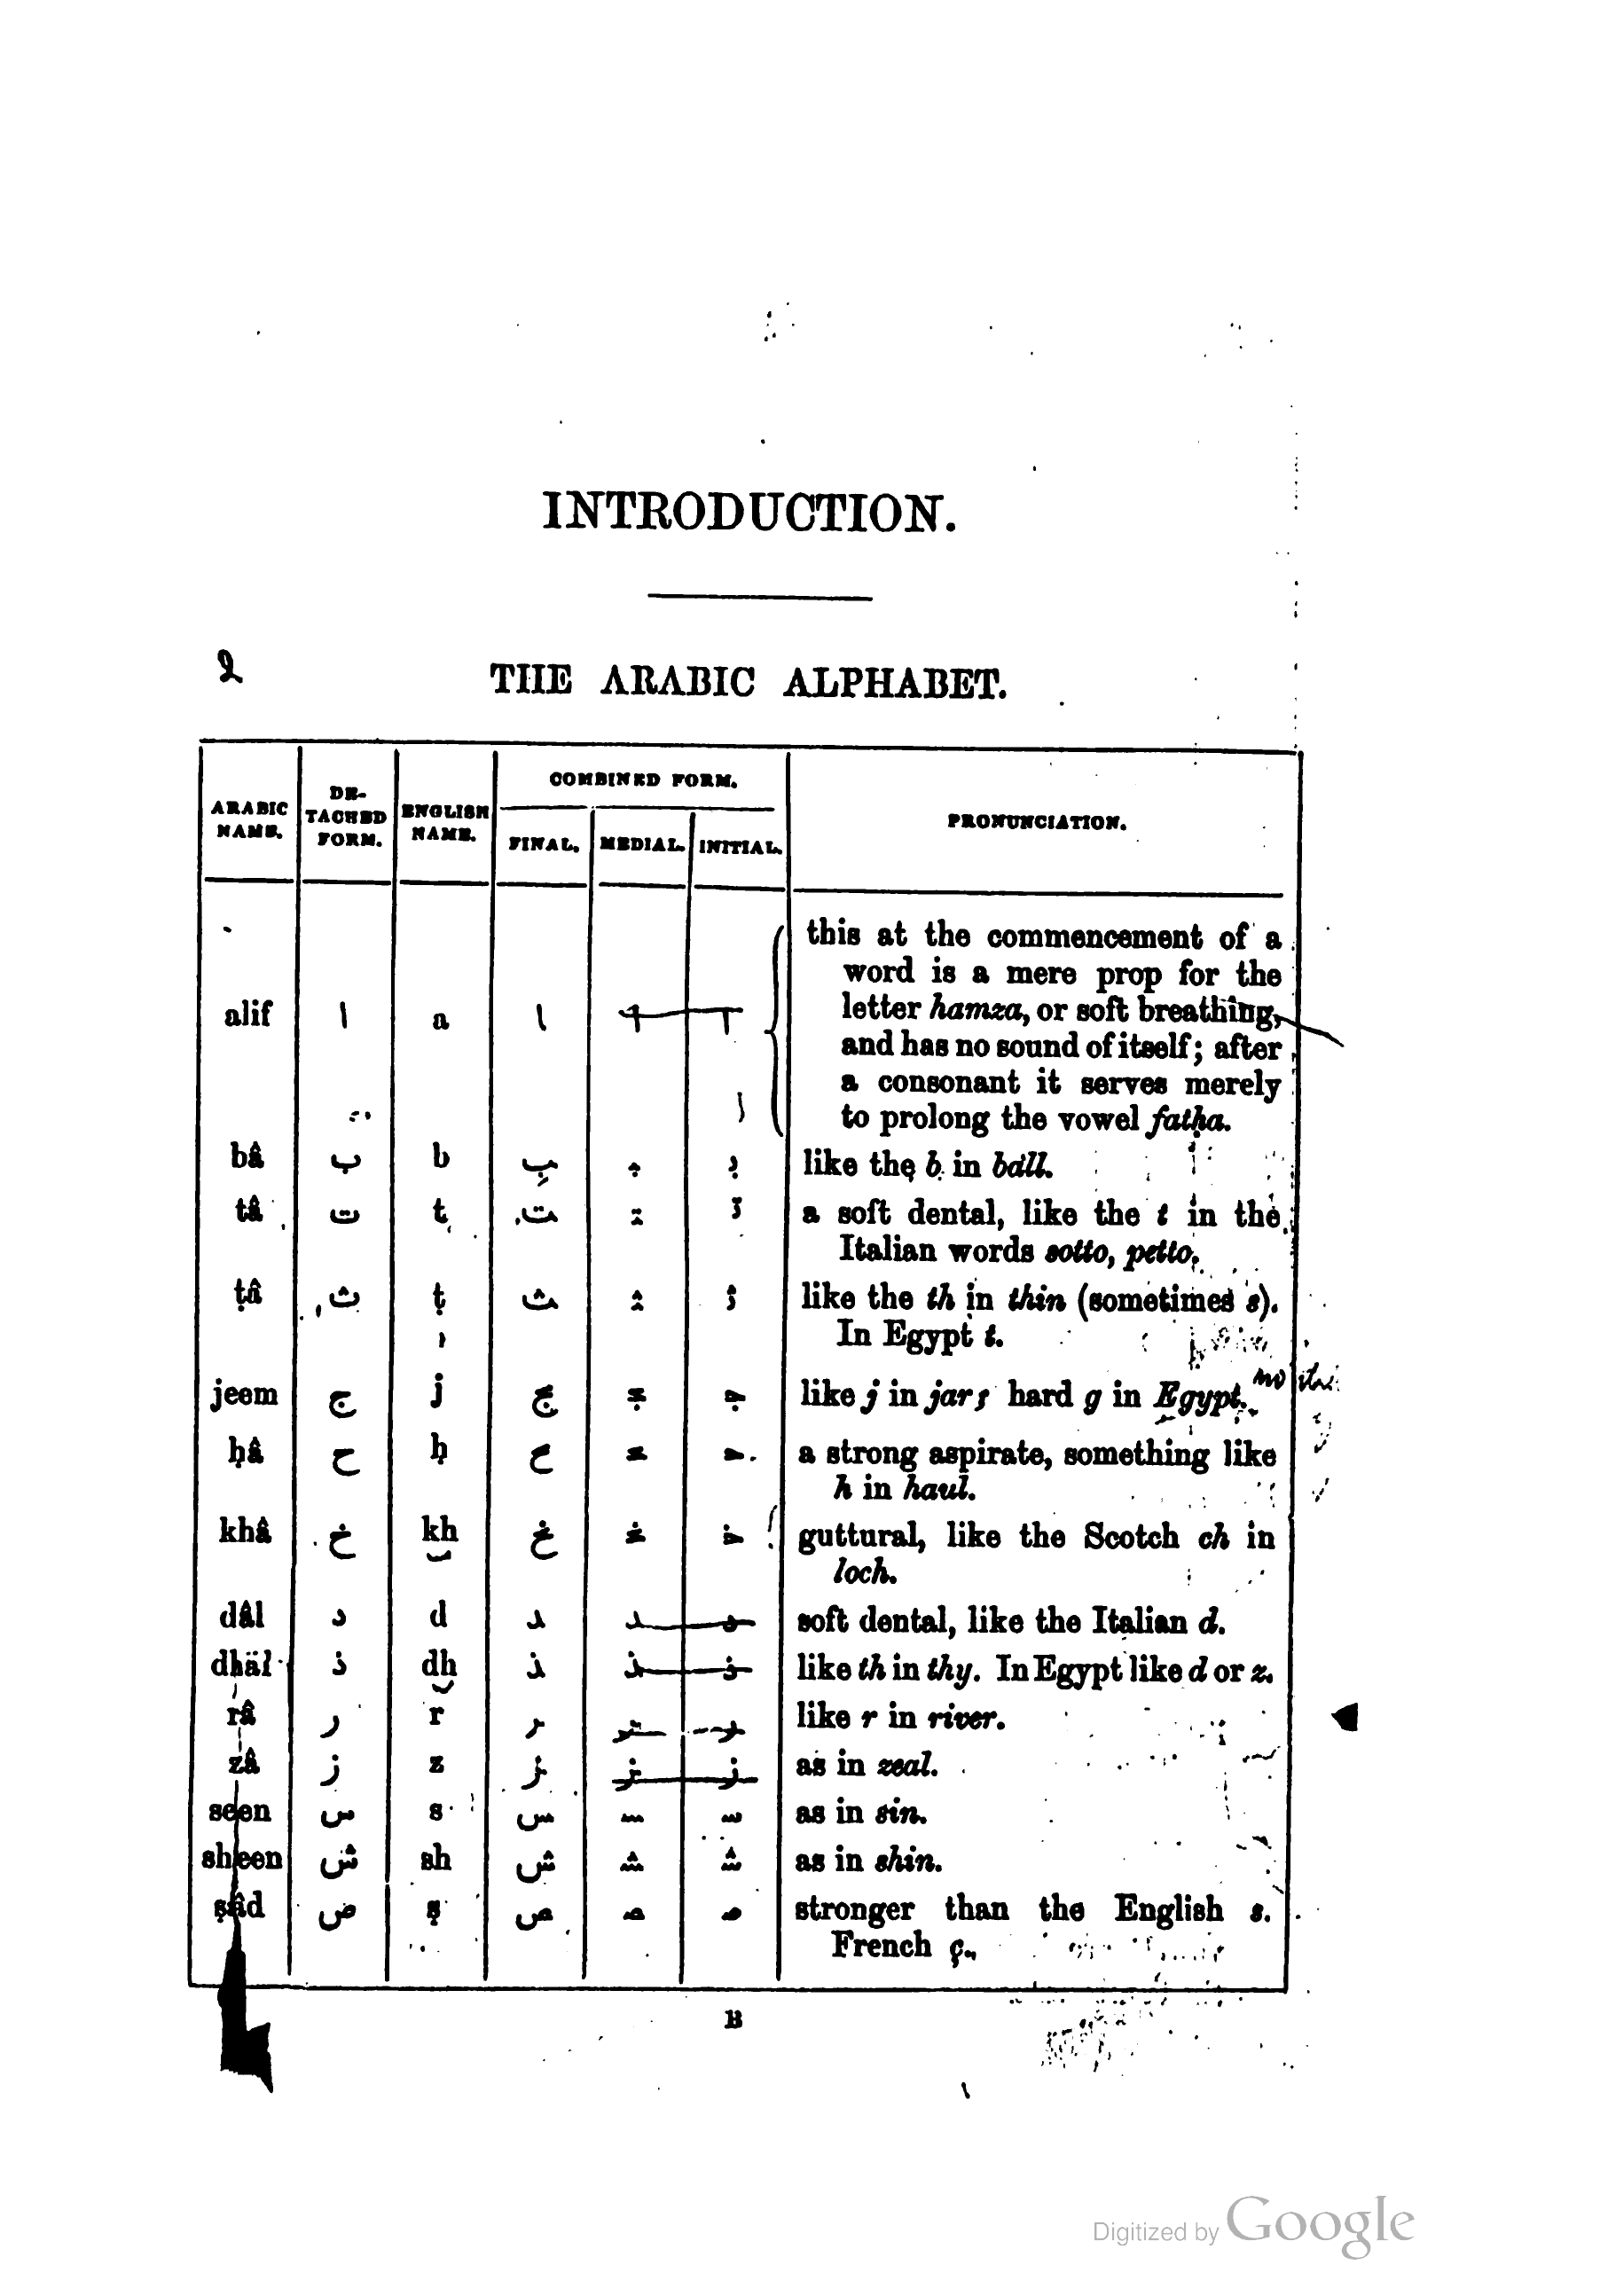 INTRODUCTION.
2
THE ARABIC ALPHABET.
ARABIC NAME. DE-TACHED FORM. ENGLISH NAME. COMBINED FORM. FINAL. MEDIAL. INITIAL. PRONUNCIATION.
alif ا a ـا this at the commencement of a
word is a mere prop for the
letter hamza, or soft breathing,
and has no sound of itself; after
ا a consonant it serves merely
to prolong the vowel fatḥa.
bâ ب b ـب ـبـ بـ like the b in ball.
tâ ت t ـت ـتـ تـ a soft dental, like the t in the
Italian words sotto, petto.
ṭâ ث ṭ ـث ـثـ ثـ like the th in thin (sometimes s).
In Egypt t.
jeem ج j ـج ـجـ جـ like j in jar; hard g in Egypt. no
ḥâ ح ḥ ـح ـحـ حـ a strong aspirate, something like
h in haul.
khâ خ kh ـخ ـخـ خـ guttural, like the Scotch ch in
loch.
dâl د d ـد ـد د soft dental, like the Italian d.
dhäl ذ dh ـذ ـذ ذ like th in thy. In Egypt like d or z.
râ ر r ـر ـر ر like r in river.
zâ ز z ـز ـز ز as in zeal.
seen س s ـس ـسـ سـ as in sin.
sheen ش sh ـش ـشـ شـ as in shin.
ṣâd ص ṣ ـص ـصـ صـ stronger than the English s.
French ç.
B
Digitized by Google